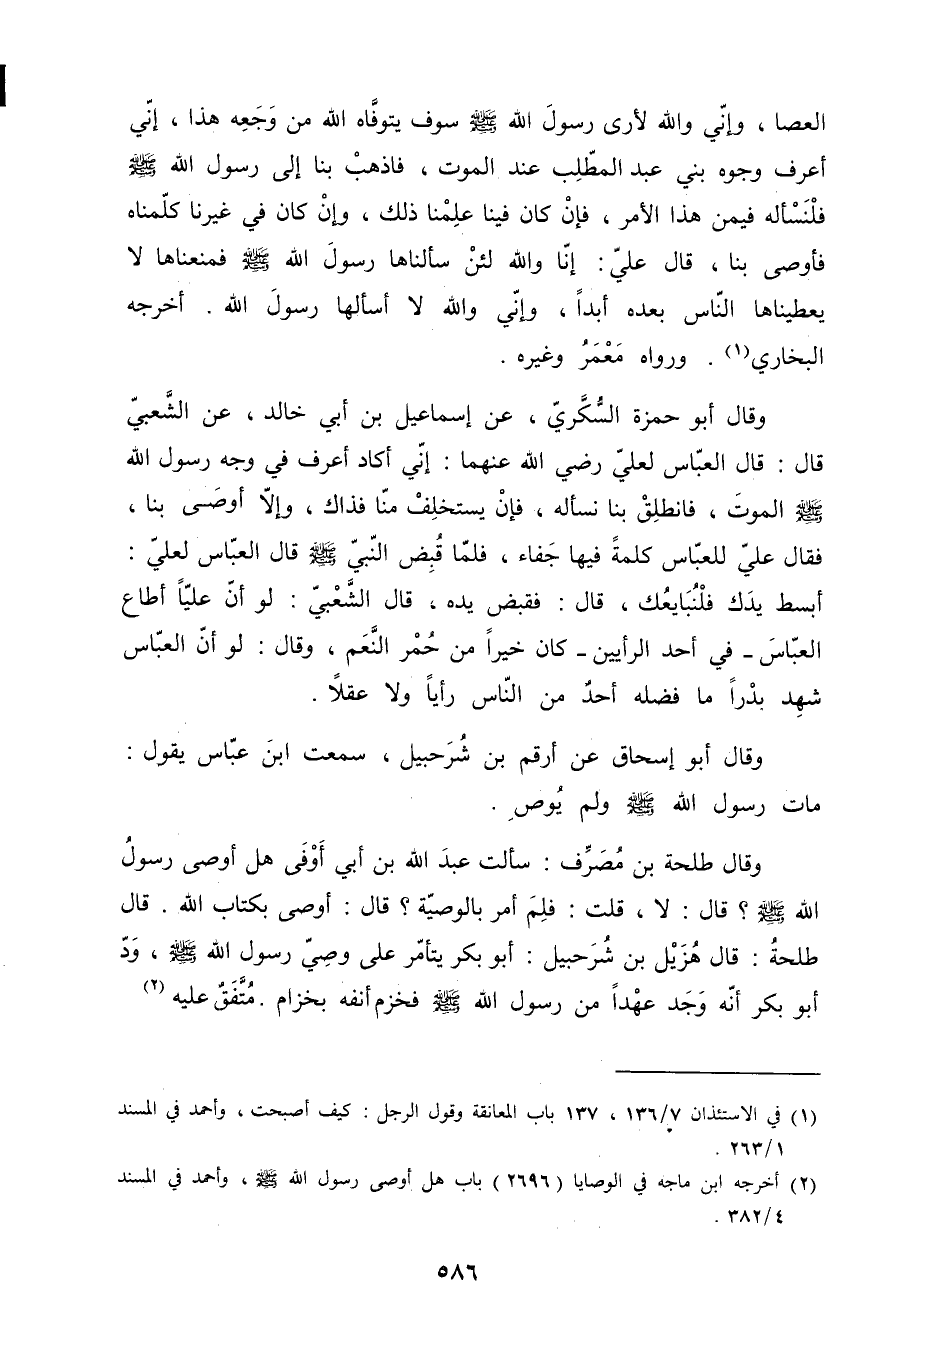 العصا ، وإنّي والله لأرى رسولَ الله ﷺ سوف يتوفَّاه الله من وَجَعِه هذا ، إنّي
أعرف وجوه بني عبد المطّلِب عند الموت ، فاذهبْ بنا إلى رسول الله ﷺ
فلْنَسْأله فيمن هذا الأمر ، فإنْ كان فينا علِمْنا ذلك ، وإنْ كان في غيرنا كلّمناه
فأوصى بنا ، قال عليّ : إنّا والله لئنْ سألناها رسولَ الله ﷺ فمنعناها لا
يعطيناها النّاس بعده أبداً ، وإنّي والله لا أسألها رسولَ الله . أخرجه
البخاري(١) . ورواه مَعْمَرُ وغيره .
وقال أبو حمزة السُّكَّريّ ، عن إسماعيل بن أبي خالد ، عن الشَّعبيّ
قال : قال العبّاس لعليّ رضي الله عنهما : إنّي أكاد أعرف في وجه رسول الله
ﷺ الموتَ ، فانطلِقْ بنا نسأله ، فإنْ يستخلِفْ منّا فذاك ، وإلاّ أوصَى بنا ،
فقال عليّ للعبّاس كلمةً فيها جَفاء ، فلمّا قُبِض النّبيّ ﷺ قال العبّاس لعليّ :
أبسط يدَك فلْنُبَايعُك ، قال : فقبض يده ، قال الشَّعْبيّ : لو أنّ عليّاً أطاع
العبّاسَ ـ في أحد الرأيين ـ كان خيراً من حُمْر النَّعَم ، وقال : لو أنّ العبّاس
شهِد بدْراً ما فضله أحدٌ من النّاس رأياً ولا عقلاً .
وقال أبو إسحاق عن أرقم بن شُرَحبيل ، سمعت ابنَ عبّاس يقول :
مات رسول الله ﷺ ولم يُوصِ .
وقال طلحة بن مُصَرِّف : سألت عبدَ الله بن أبي أَوْفَى هل أوصى رسولُ
الله ﷺ ؟ قال : لا ، قلت : فلِمَ أمر بالوصيّة ؟ قال : أوصى بكتاب الله . قال
طلحةُ : قال هُزَيْل بن شُرَحبيل : أبو بكر يتأمّر على وصِيّ رسول الله ﷺ ، وَدّ
أبو بكر أنّه وَجَد عهْداً من رسول الله ﷺ فخزم أنفه بخزام . مُتَّفَقٌ عليه (٢)
(١) في الاستئذان ١٣٦/٧ ، ١٣٧ باب المعانقة وقول الرجل : كيف أصبحت ، وأحمد في المسند
٢٦٣/١ .
(٢) أخرجه ابن ماجه في الوصايا (٢٦٩٦) باب هل أوصى رسول الله ﷺ ، وأحمد في المسند
٣٨٢/٤ .
٥٨٦